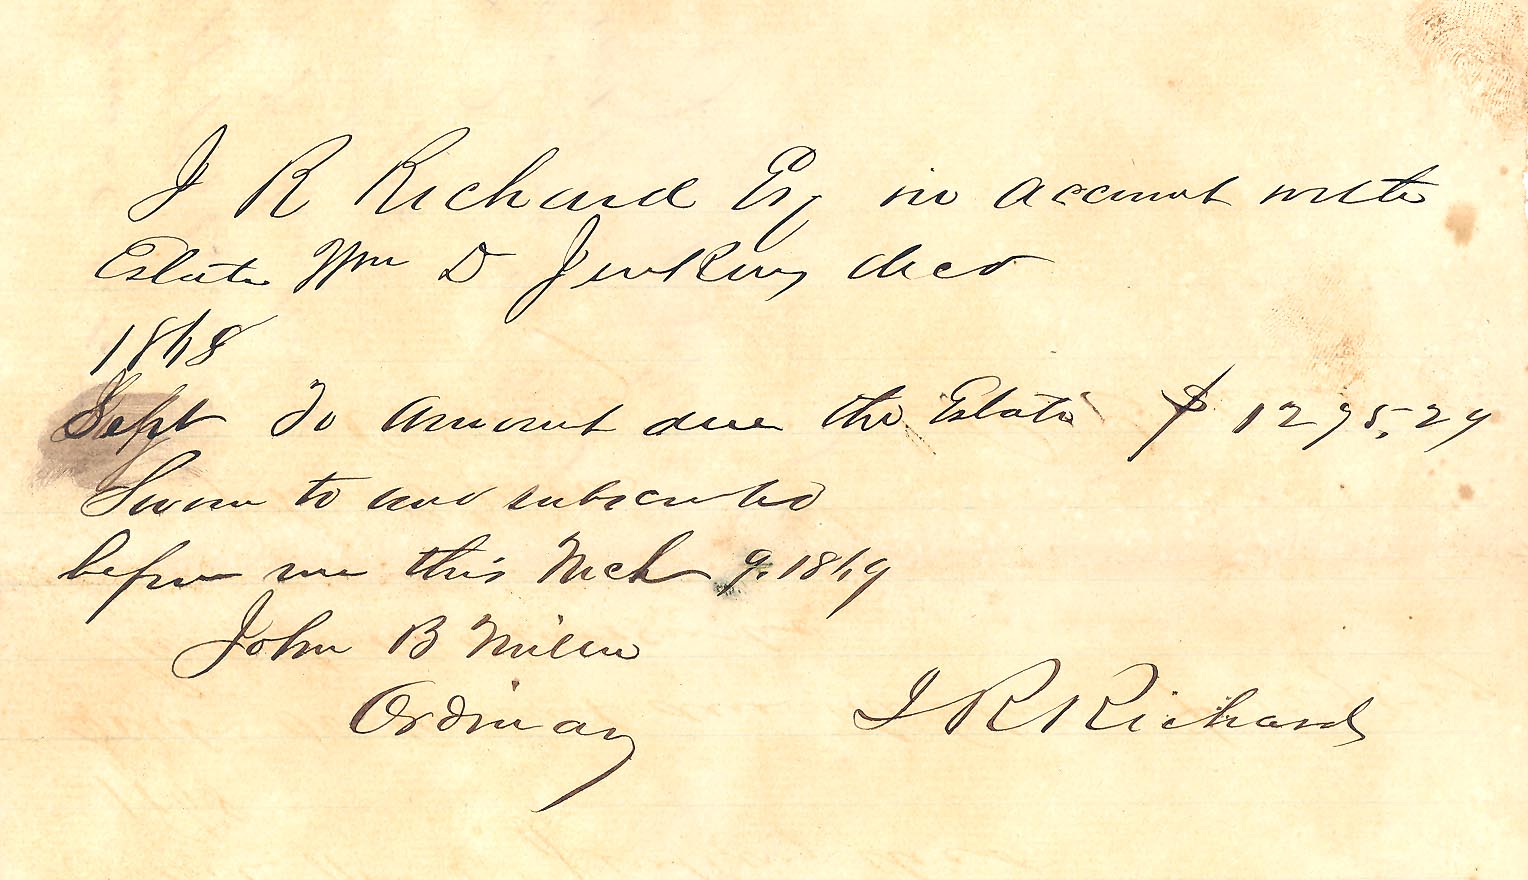 J R Richard Esq in account with
Estate Wm D Jenkins decd
1868
Sept To amount due the Estate $ 1295.29
Sworn to and subscribed
before me this Mch 9. 1869
John B Milner
Ordinary
J R Richards